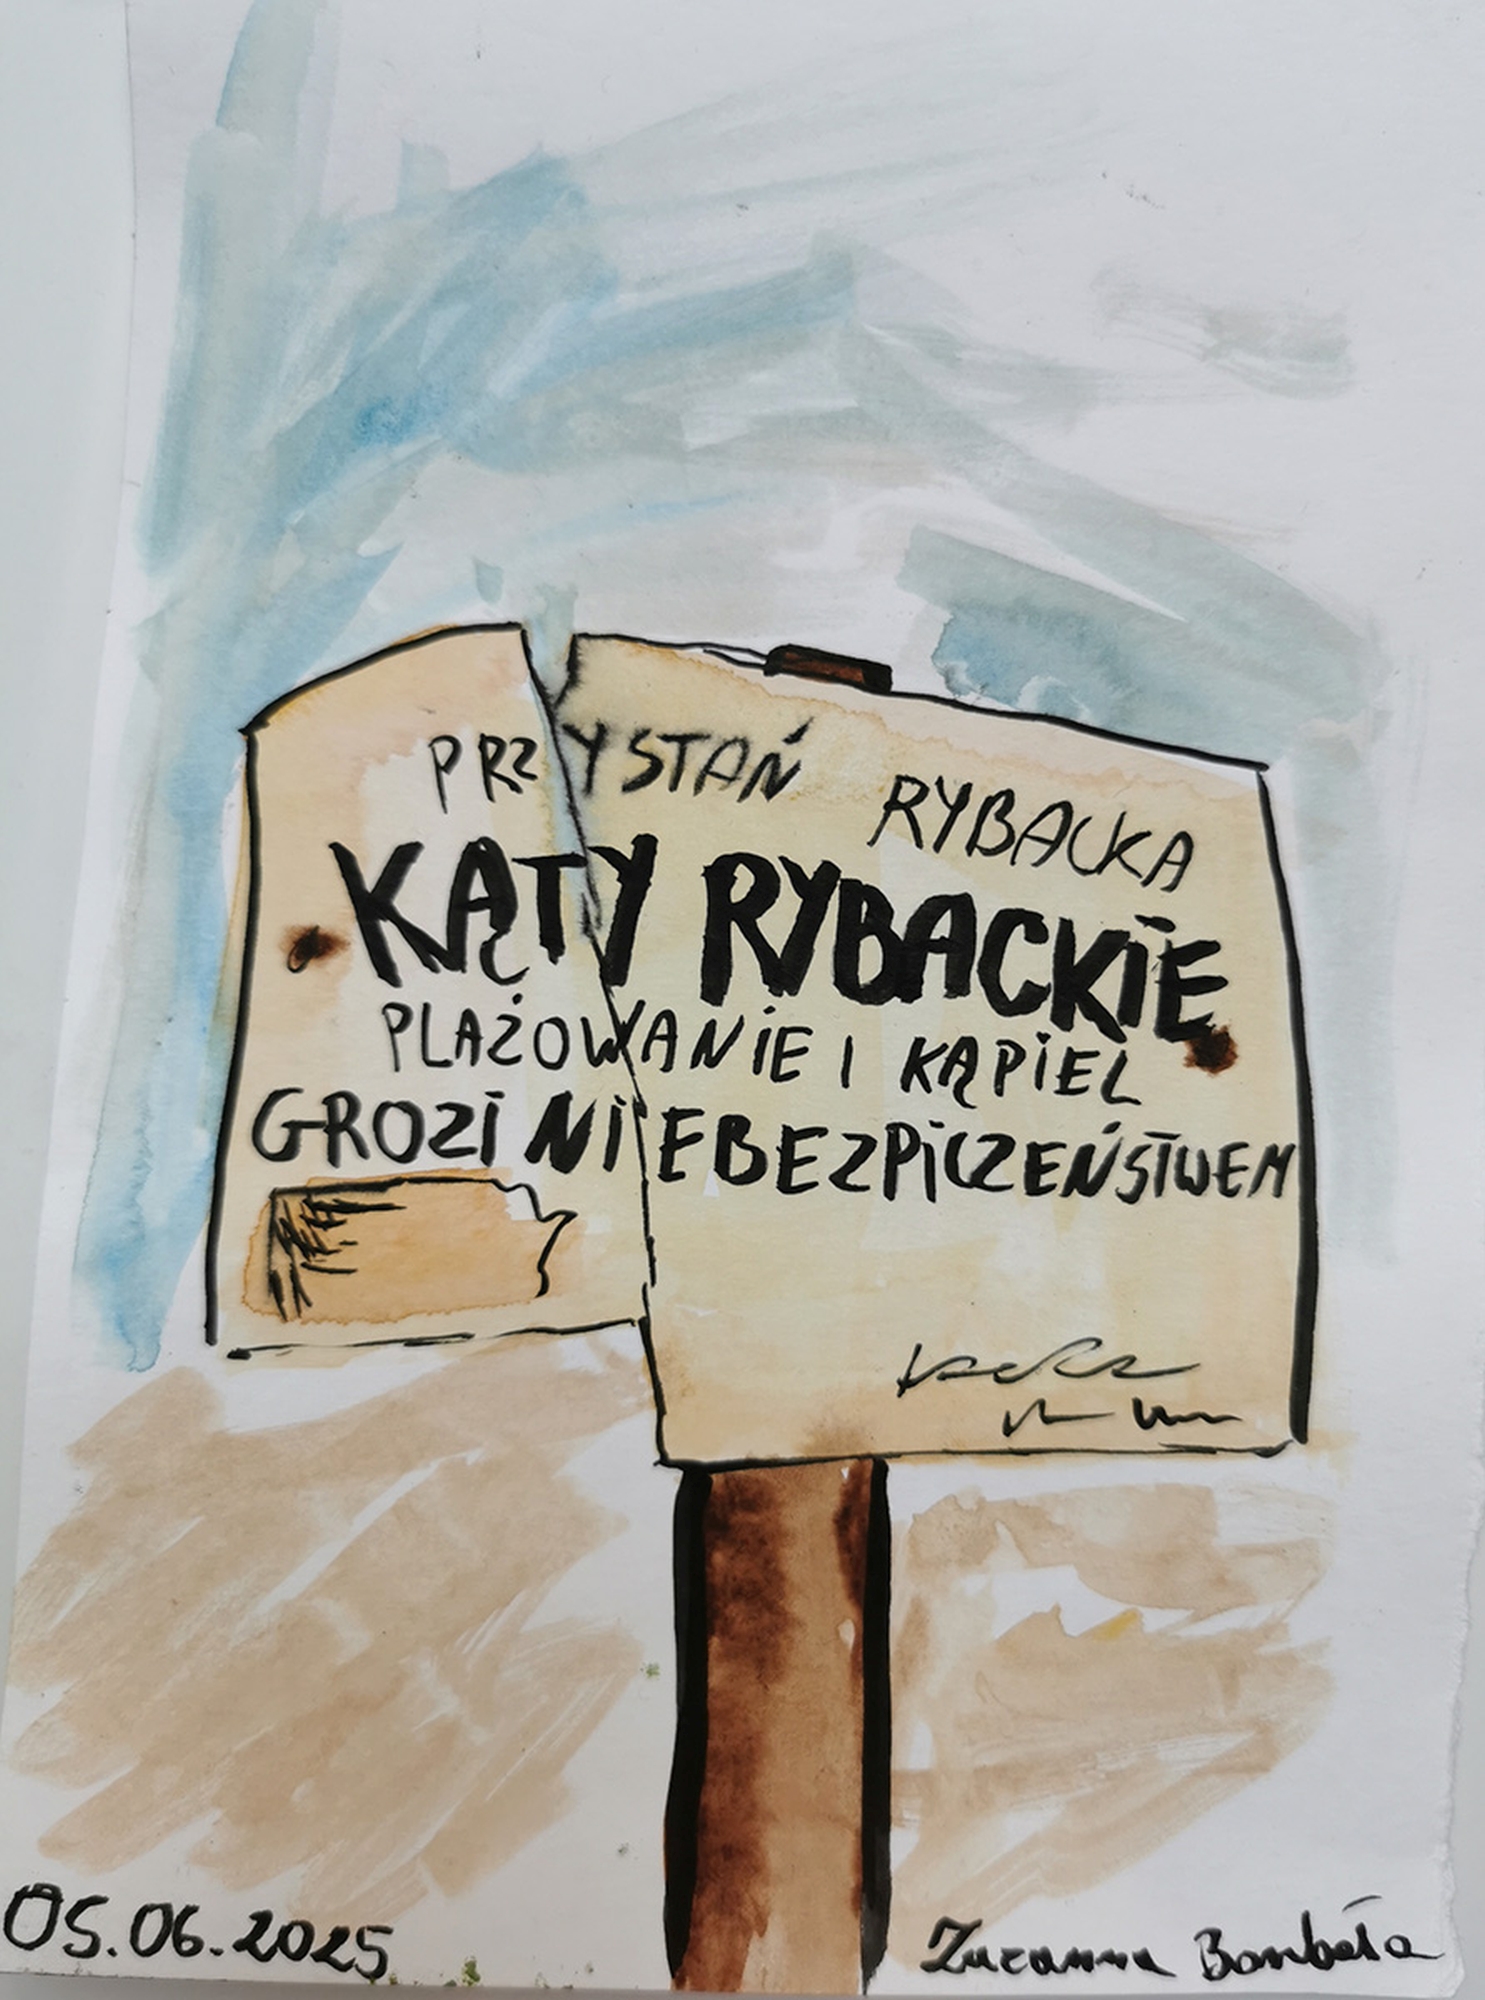 PRZYSTAŃ RYBACKA
KĄTY RYBACKIE
PLAŻOWANIE I KĄPIEL
GROZI NIEBEZPICZEŃSTWEM
05.06.2025
Zuzanna